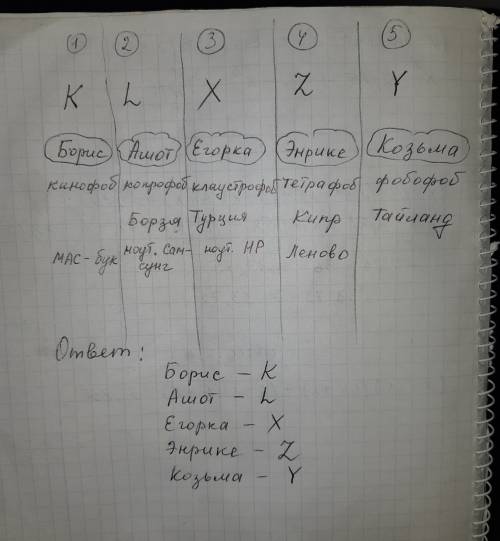 1 2 3 4 5
K L X Z Y
Борис Ашот Егорка Энрике Козьма
кинофоб копрофоб клаустрофоб тетрафоб фобофоб
Борзя Турция Кипр Тайланд
МАС-бук ноут. Сам-сунг ноут. HP Леново
Ответ:
Борис - K
Ашот - L
Егорка - X
Энрике - Z
Козьма - Y